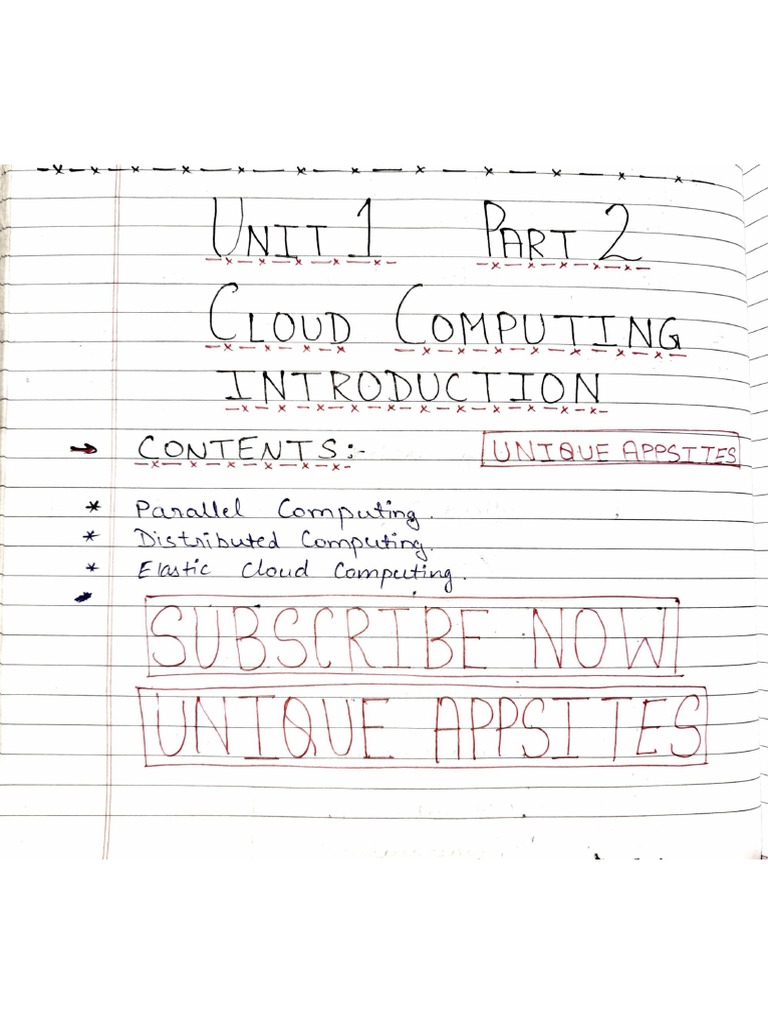 UNIT 1 PART 2
CLOUD COMPUTING
INTRODUCTION
→ CONTENTS:-
UNIQUE APPSITES
* Parallel Computing.
* Distributed Computing.
* Elastic Cloud Computing.
SUBSCRIBE NOW
UNIQUE APPSITES